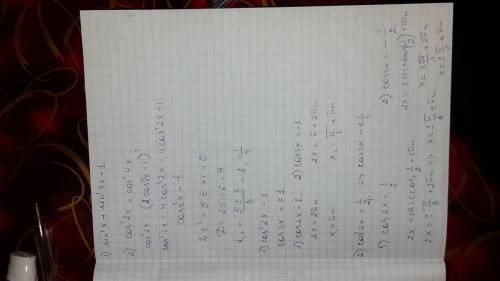 1) sin²x + sin²3x = 1
2) cos²2x = cos²4x
cos²2x = (2cos²2x - 1)²
cos²2x = 4cos⁴2x - 4cos²2x + 1
cos²2x = t
4t² - 5t + 1 = 0
D = 25 - 16 = 9
t₁,₂ = (5 ± 3)/8 = 1, 1/4
1) cos²2x = 1
cos2x = ±1
1) cos2x = 1   2) cos2x = -1
2x = 2πn   2x = π + 2πn
x₁ = πn   x₂ = π/2 + πn
2) cos²2x = 1/4 => cos2x = ±1/2
1) cos2x = 1/2   2) cos2x = -1/2
2x = ±arccos 1/2 + 2πn   2x = ±arccos(-1/2) + 2πn
2x = ±π/3 + 2πn => x = ±π/6 + πn
x = ±π/3 + πn